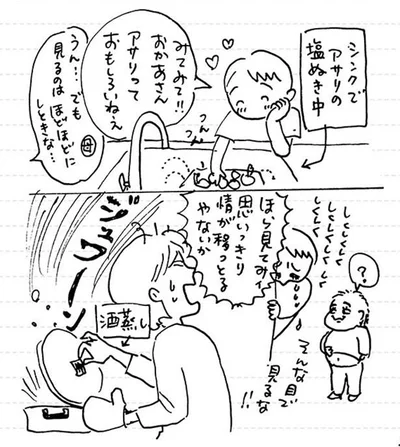 シンクで
アサリの
塩ぬき中
みてみて!!
おかあさん
アサリって
おもしろいねえ
つんつん
つん
うん…でも
見るのは
ほどほどに
しときな…
母
しくしくしく
しくしくしく
しくしく
?
ほら見てみィ
思いっきり
情が移っとる
やないか
そんな目で
見るな!!
ジュワーン
酒蒸し